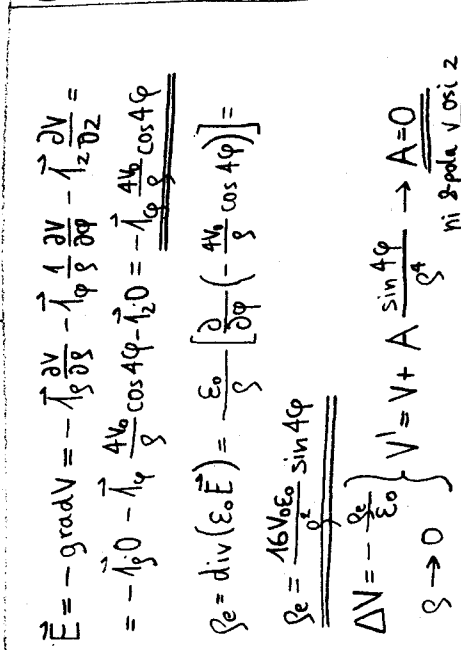 E⃗ = - grad V = - 1⃗ρ ∂V/∂ρ - 1⃗φ 1/ρ ∂V/∂φ - 1⃗z ∂V/∂z =
= - 1⃗ρ 0 - 1⃗φ 4V₀/ρ cos 4φ - 1⃗z 0 = - 1⃗φ 4V₀/ρ cos 4φ
ρe = div(ε₀E⃗) = - ε₀/ρ [∂/∂φ (- 4V₀/ρ cos 4φ)] =
ρe = 16V₀ε₀/ρ² sin 4φ
ΔV = - ρe/ε₀ } V' = V + A sin 4φ/ρ⁴ → A = 0
ρ → 0
ni 8-pola v osi z